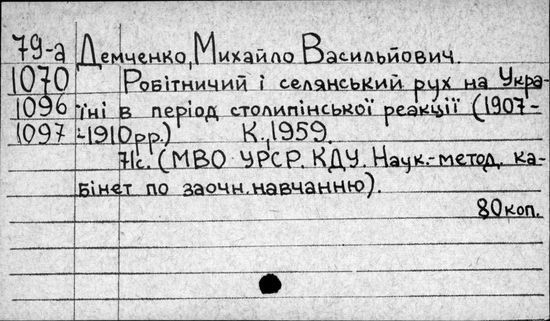 79-а Демченко, Михайло Васильйович.
1070 Робітничий і селянський рух на Укра-
1096 їні в період столипінської реакції (1907-
1097 -1910 рр.) К., 1959.
71с. (МВО УРСР. КДУ. Наук.-метод. ка-
бінет по заочн. навчанню).
80 коп.